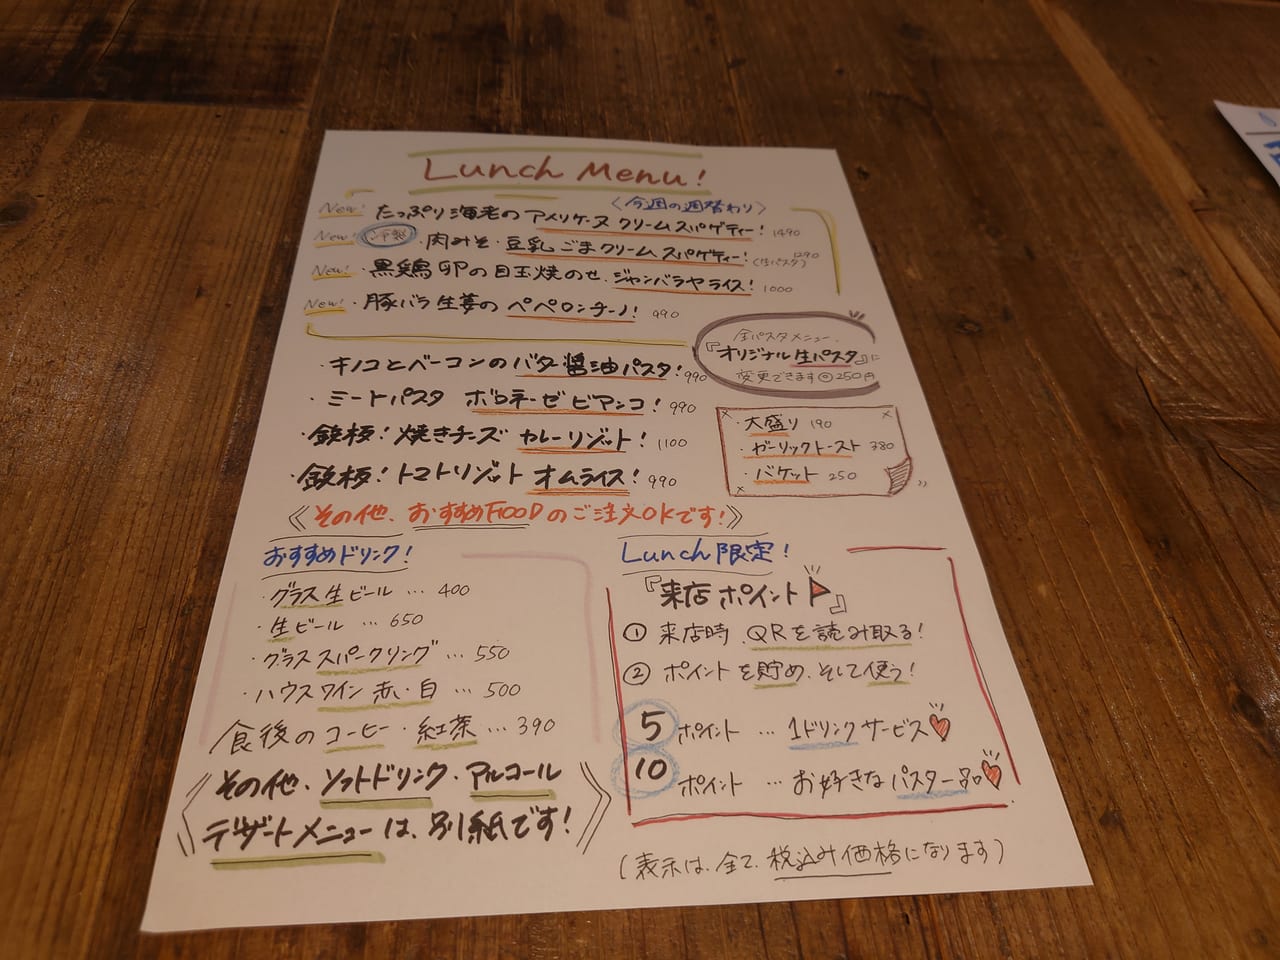 Lunch Menu!
〈今週の週替わり〉
New! たっぷり海老のアメリケーヌクリームスパゲティー! 1490
New! 冷製・肉みそ・豆乳ごまクリームスパゲティー! 1290
(生パスタ)
New! ・黒鶏卵の目玉焼のせ、ジャンバラヤライス! 1000
New! ・豚バラ生姜のペペロンチーノ! 990
全パスタメニュー、
『オリジナル生パスタ』に
変更できます◎250円
・キノコとベーコンのバター醤油パスタ! 990
・ミートパスタ ボロネーゼビアンコ! 990
・鉄板!焼きチーズカレーリゾット! 1100
・鉄板!トマトリゾットオムライス! 990
・大盛り 190
・ガーリックトースト 380
・バケット 250
《その他、おすすめFOODのご注文OKです!》
おすすめドリンク!
・グラス生ビール … 400
・生ビール … 650
・グラススパークリング … 550
・ハウスワイン赤・白 … 500
食後のコーヒー・紅茶 … 390
《その他、ソフトドリンク・アルコール
デザートメニューは、別紙です!》
Lunch限定!
『来店ポイント』
① 来店時、QRを読み取る!
② ポイントを貯め、そして使う!
5ポイント … 1ドリンクサービス♡
10ポイント … お好きなパスタ一品♡
(表示は、全て、税込み価格になります)